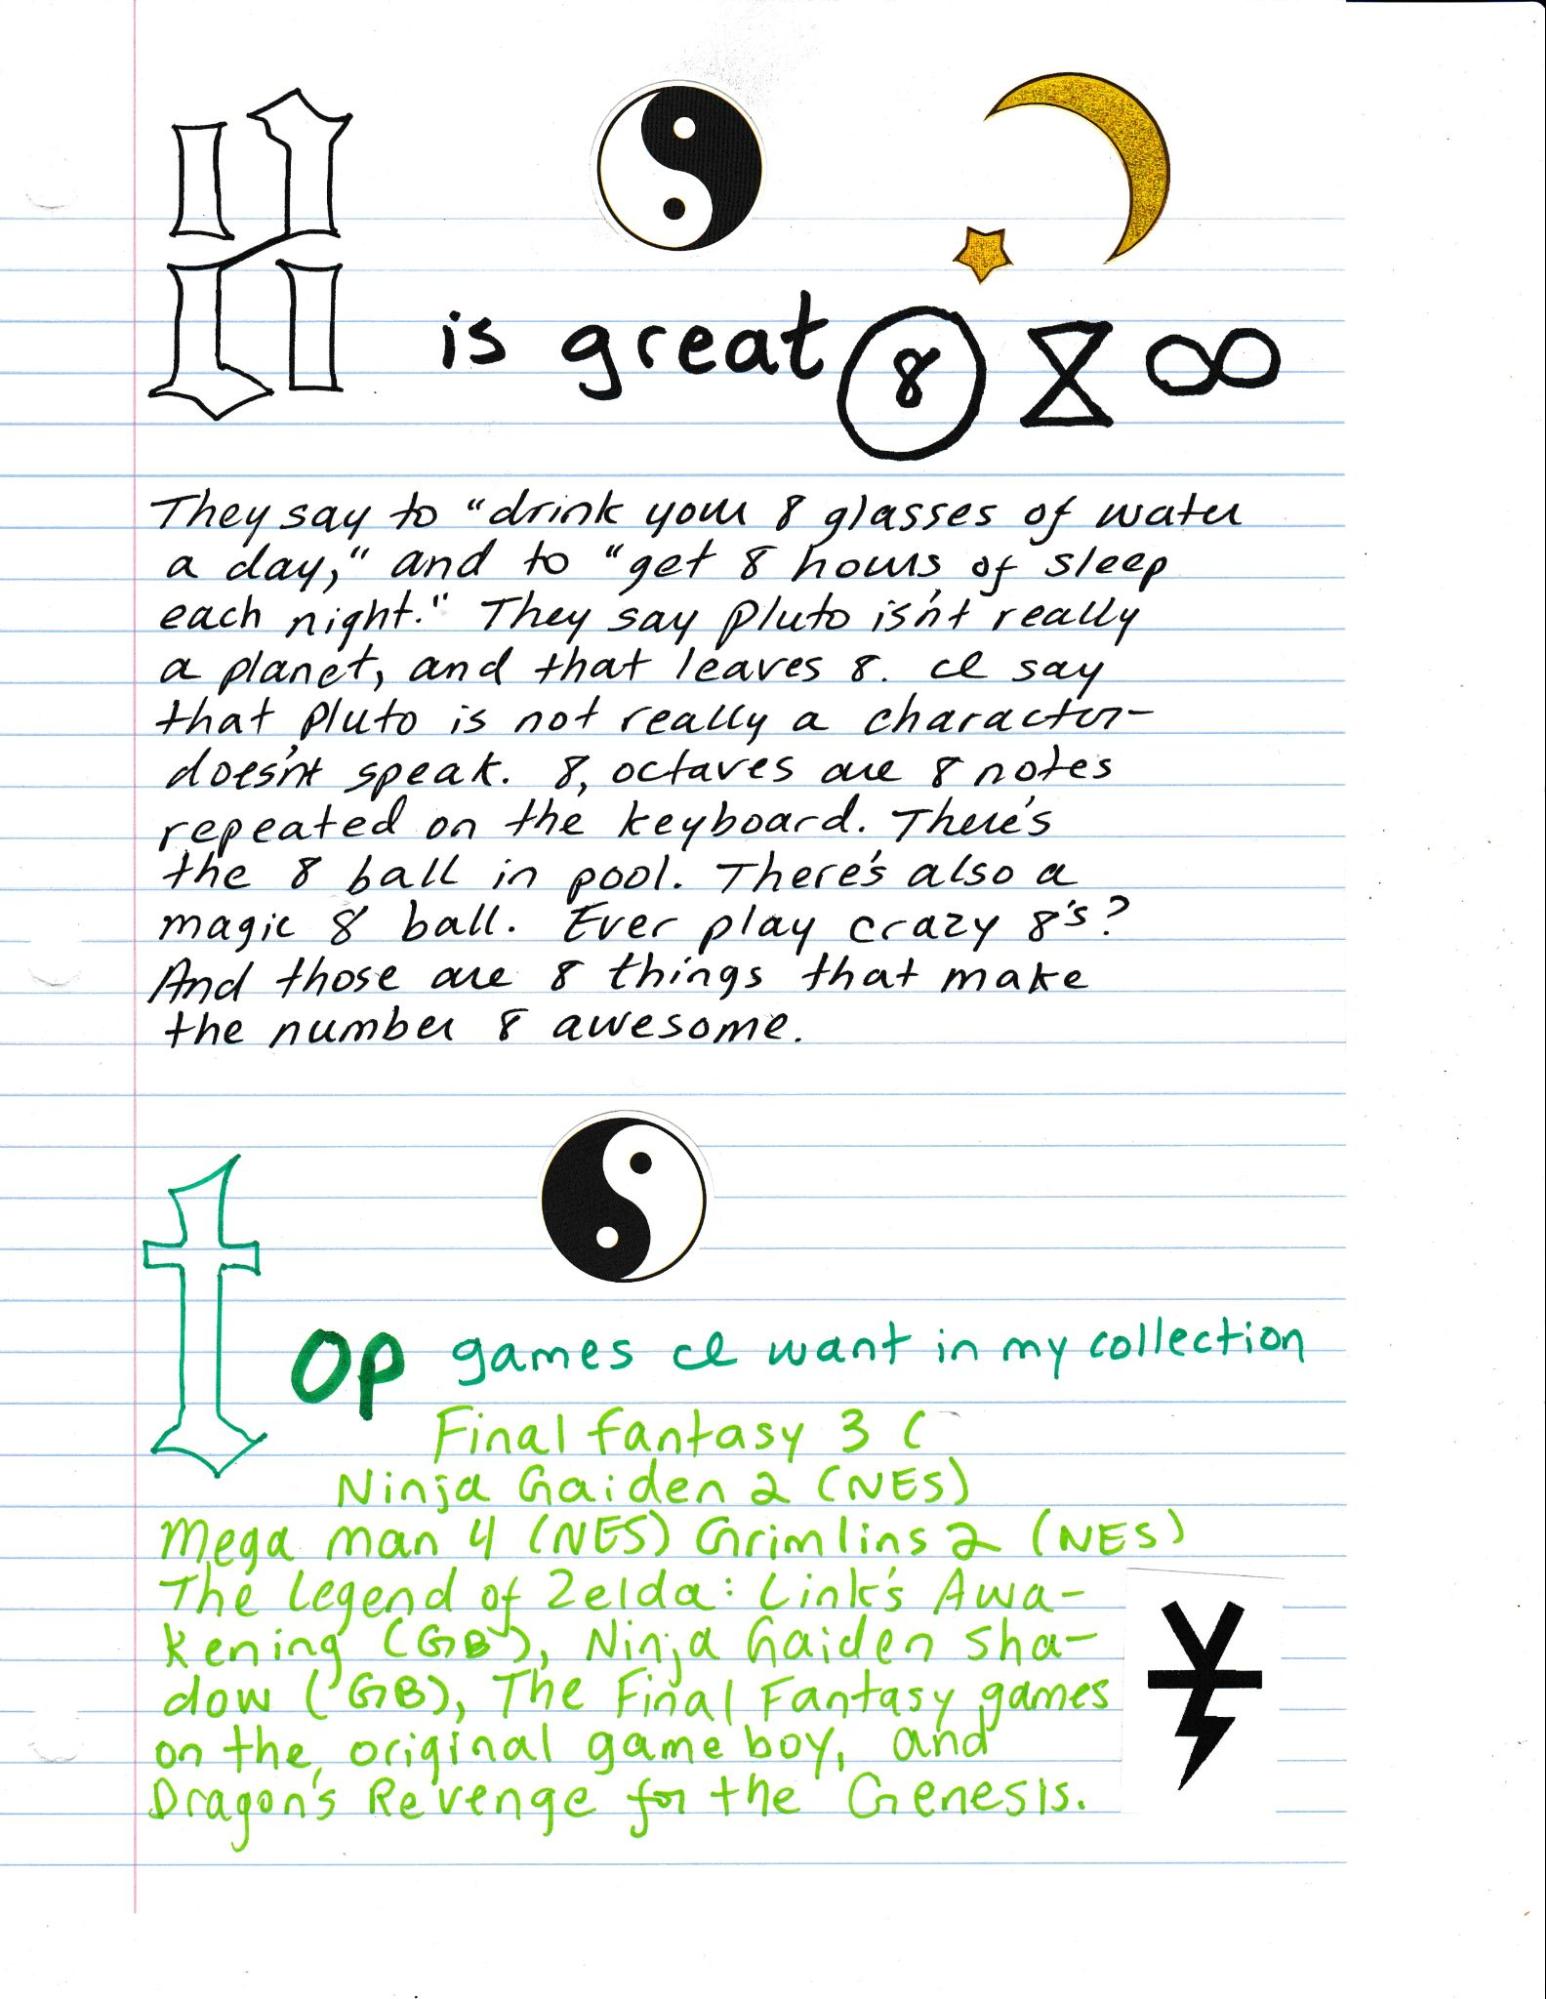 is great 8 ∞
They say to "drink your 8 glasses of water
a day," and to "get 8 hours of sleep
each night." They say Pluto isn't really
a planet, and that leaves 8. I say
that Pluto is not really a character-
doesn't speak. 8, octaves are 8 notes
repeated on the keyboard. There's
the 8 ball in pool. There's also a
magic 8 ball. Ever play crazy 8's?
And those are 8 things that make
the number 8 awesome.
top games I want in my collection
Final fantasy 3 (
Ninja Gaiden 2 (NES)
Mega man 4 (NES) Grimlins 2 (NES)
The Legend of Zelda: Link's Awa-
kening (GB), Ninja Gaiden Sha-
dow (GB), The Final Fantasy games
on the, original game boy, and
Dragon's Revenge for the Genesis.